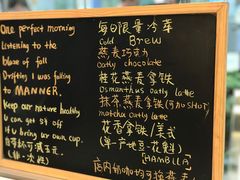 One perfect morning
listening to the
blaze of fall
Drifting I was falling
to MANNER.
Keep our nature healthy
U can get 5# off
if U bring ur own cup.
自带杯可减5元
(非一次性)
每日限量冷萃
Cold Brew
燕麦巧克力
oatly chocolate
桂花燕麦拿铁
osmanthus oatly latte
抹茶燕麦拿铁
matcha oatly latte
花香拿铁/美式
(单一产地豆·花魁)
[HAMBELLA]
店内奶咖均可换燕麦